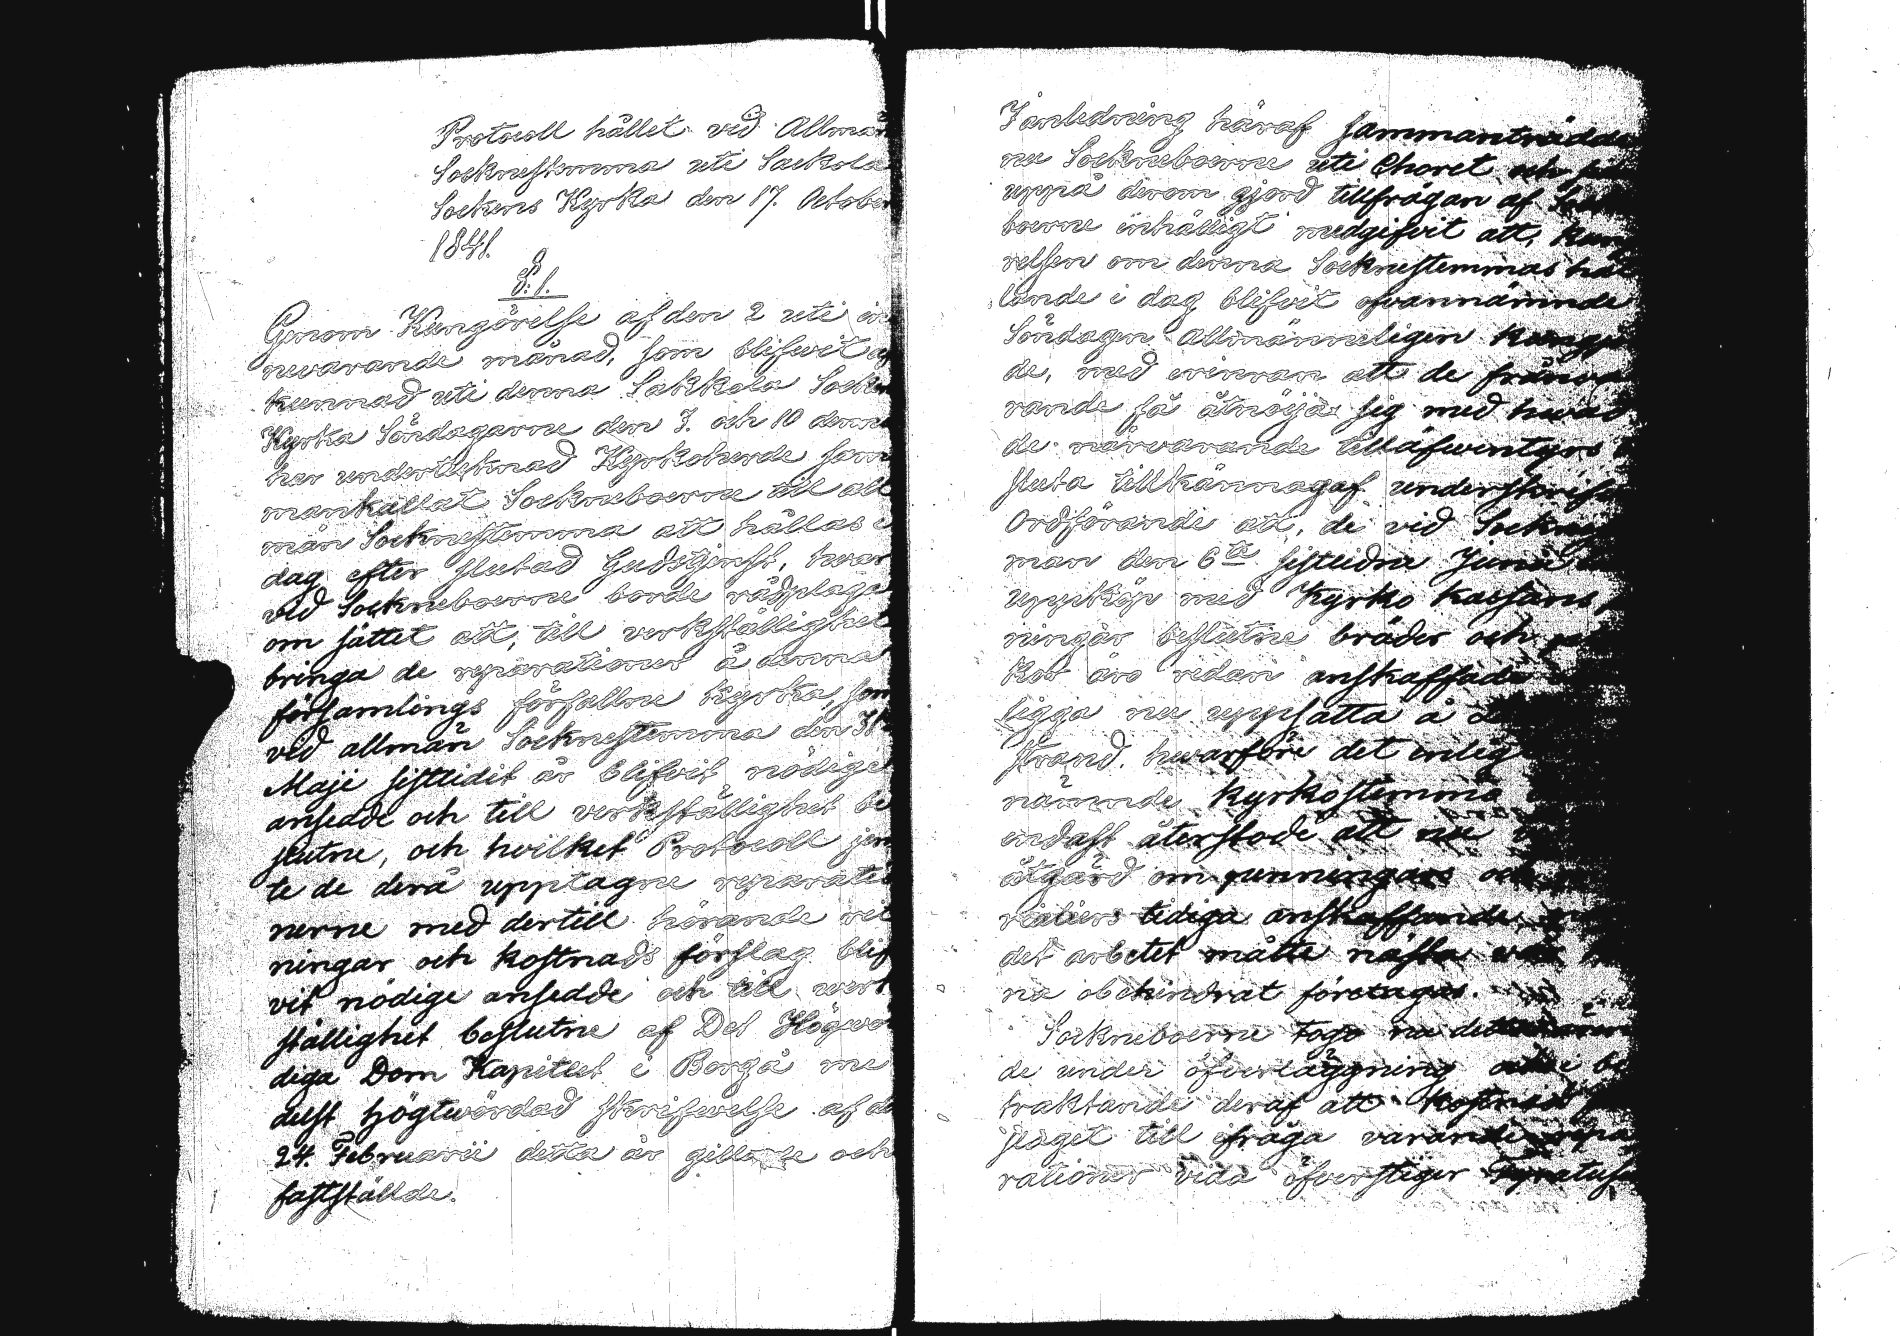 Protocoll hållet vid Allmän
Socknestemma uti Sackola
Sockens Kyrka den 17. October
1841.
§. 1.
Genom Kungörelse af den 2 uti in
nevarande månad, som blifwit af
kunnad uti denna Sakkola Socken
Kyrka Söndagarne den 3. och 10 denne
har undertecknad Kyrkoherde sam
mankallat Sockneboerne till all
män Socknestemma att hållas i
dag efter slutad Gudstjenst, hvar
ved Sockneboerne borde rådplaga
om sättet att, till verkställighet
bringa de reparationer å denna
församlings förfallne Kyrka, som
ved allmän Socknestemma den 31
Maji sistlidit år blifvit nödige
ansedde och till verkställighet be
slutne, och hvilket Protocoll jem
te de derå upptagne reparatio
nerne med dertill hörande rit
ningar och kostnads förslag blif
vit nödige ansedde och till werk
ställighet beslutne af Det Högwör
diga Dom Kapitlet i Borgå me
delst högtwördad skrifwelse af d
24. Februarii detta år gillade och
fastställde.
I anledning häraf sammanträdde
nu Sockneboerne uti Choret och
uppå derom gjord tillfrågan af Sockne
boerne enhälligt medgifvit att, kungö
relsen om denna Socknestemmas hål
lande i dag blifvit ofvannämnde
Söndagen Allmänneligen kungjor
de, med erinran att de frånva
rande få åtnöja sig med hwad
de närvarande tilläfventyrs
sluta tillkännagaf underskrifne
Ordförande att, de vid Sockne
man den 6te sistledne Junii
uppköp med Kyrko kassans
ningar beslutne bräder och
kor äro redan anskaffade
ligga nu uppsatta å
strand. hwarföre det enlig
nämnde kyrkostemma
endast återstode att nu
åtgärd om penningars och
rialiers tidiga anskaffande,
det arbetet måtte nästa vår
na obehindrat företagas.
Sockneboerne togo nu detta
de under öfverläggning och i be
traktande deraf att kostnads
slaget till ifråga varande repa
rationer vida öfverstiger Fyratusen